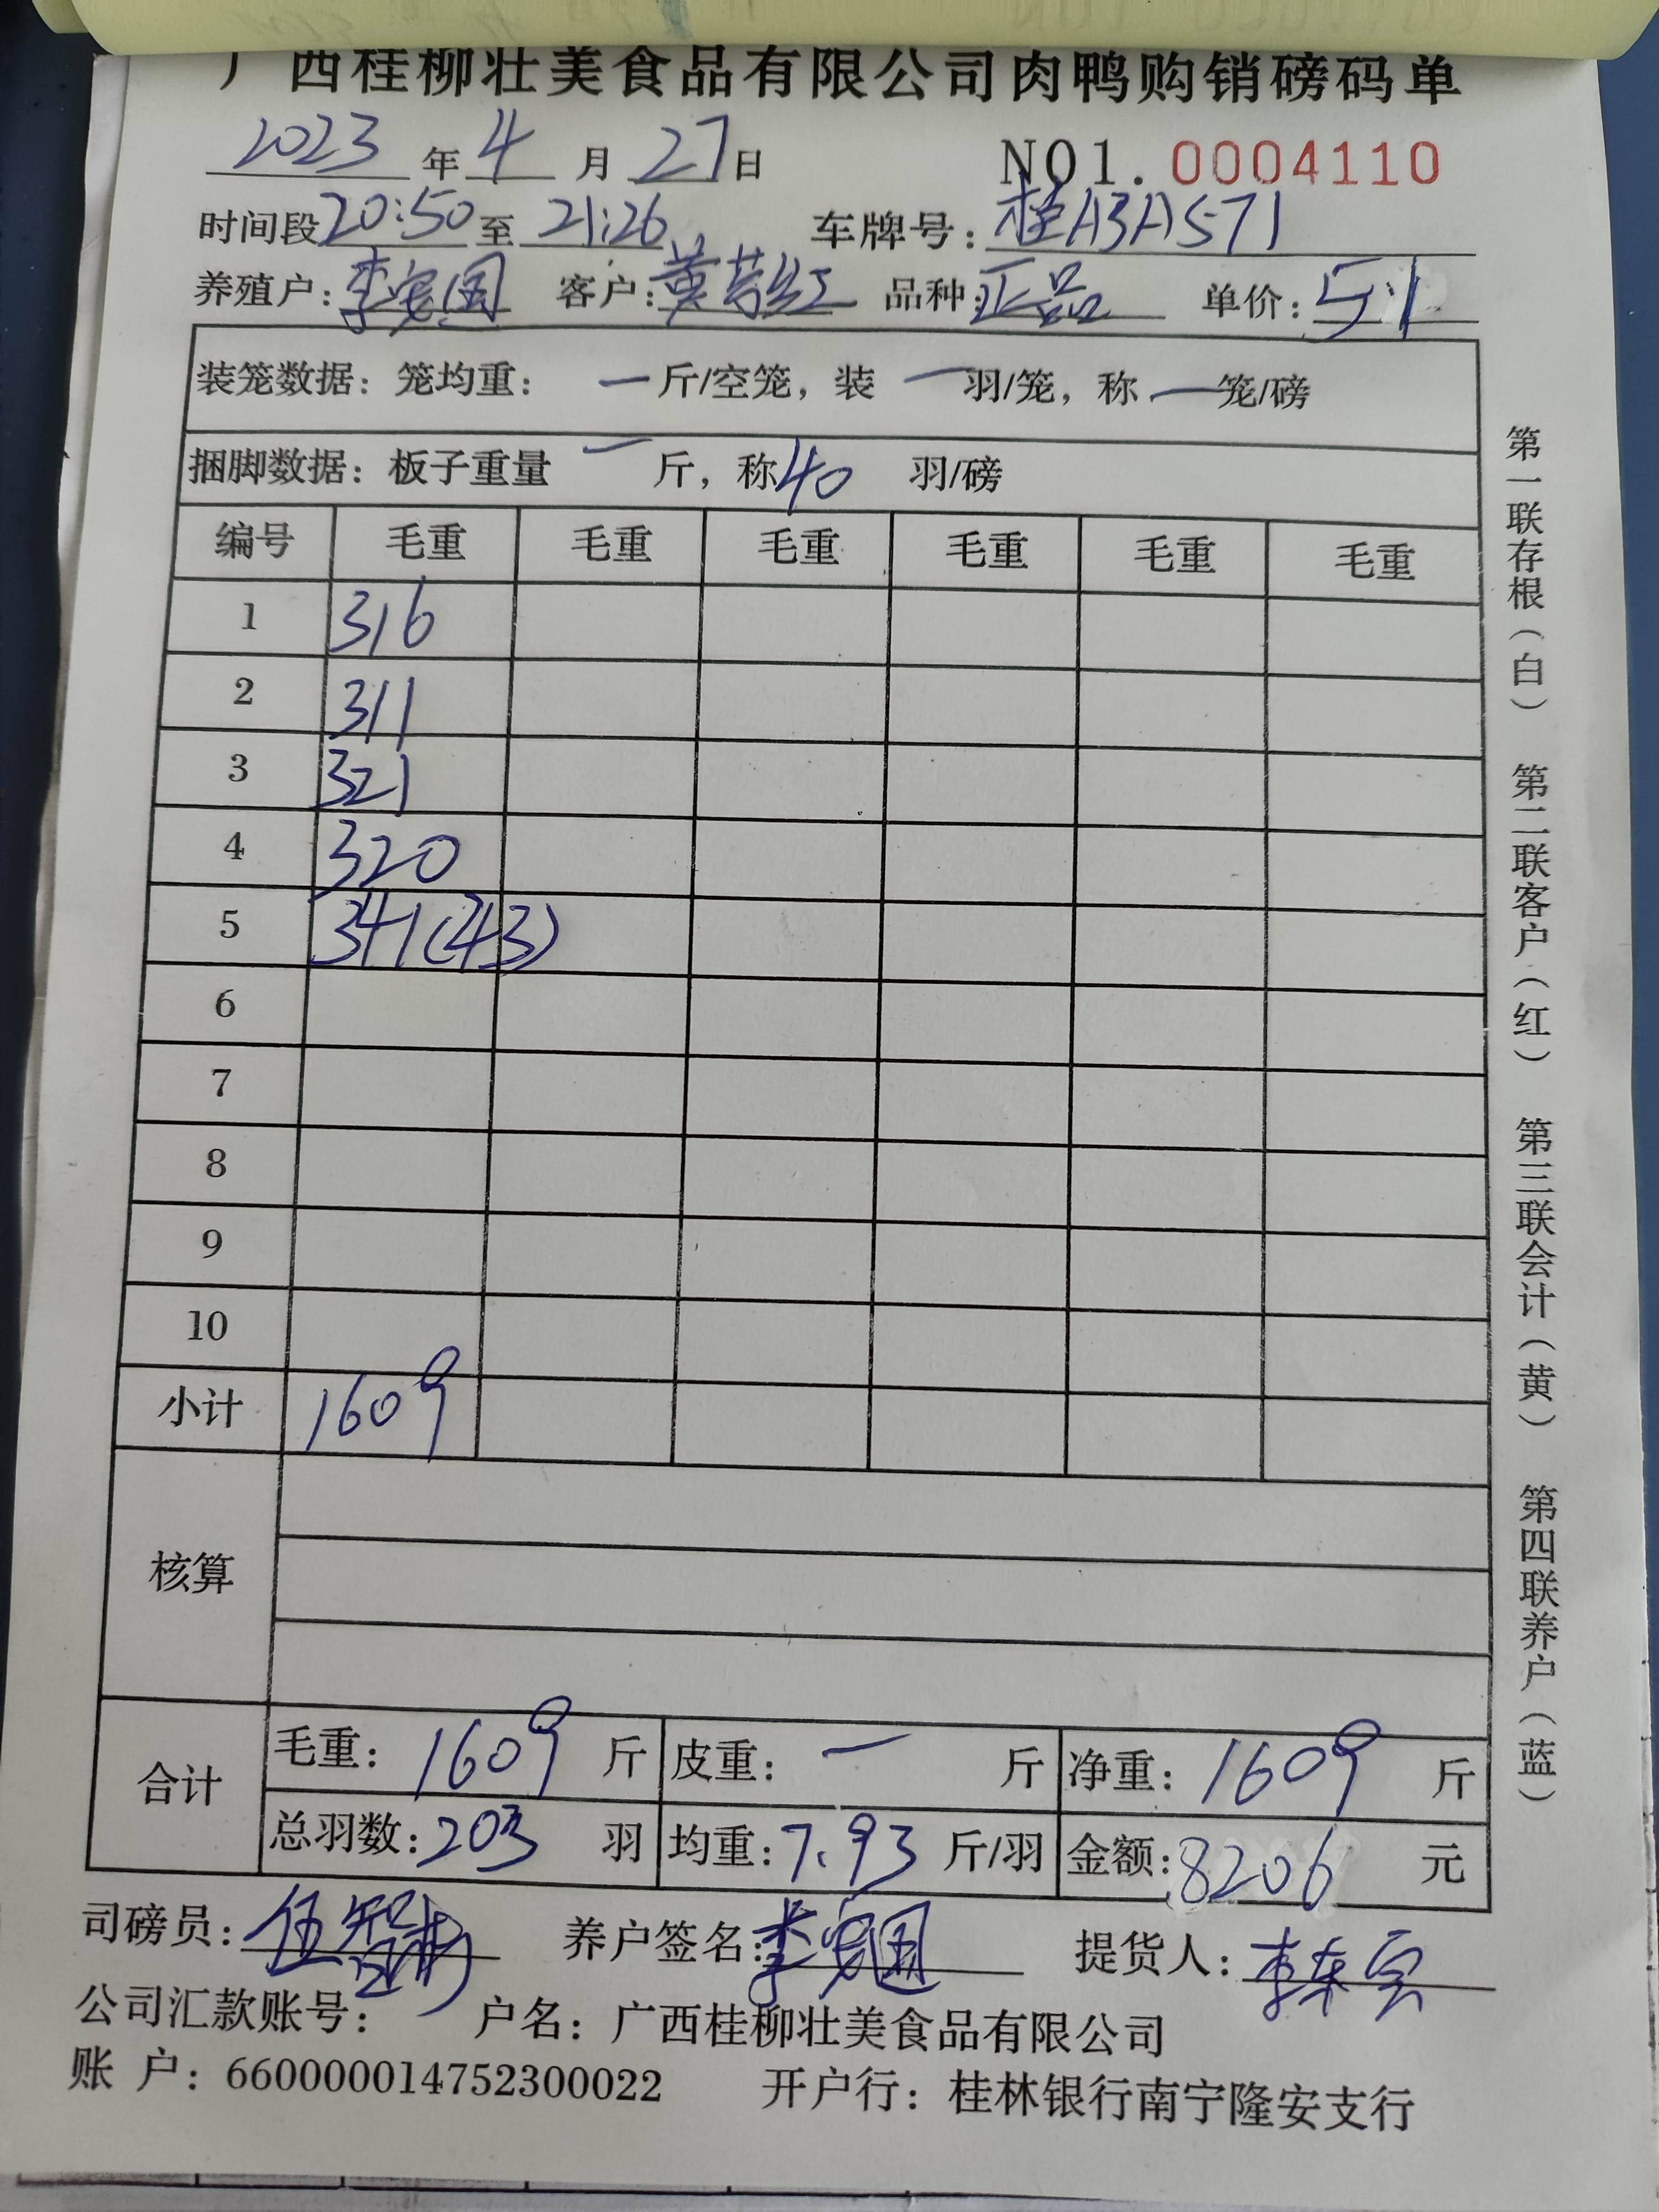 广西桂柳壮美食品有限公司肉鸭购销磅码单
2023年4月27日 NO1.0004110
时间段20:50至21:26 车牌号:桂A3A571
养殖户:李宠国 客户:黄芳红 品种:正品 单价:5.1
装笼数据：笼均重：一斤/空笼，装一羽/笼，称一笼/磅
捆脚数据：板子重量一斤，称40羽/磅
编号 毛重 毛重 毛重 毛重 毛重 毛重
1 316
2 311
3 321
4 320
5 341(43)
6
7
8
9
10
小计 1609
核算
合计 毛重：1609斤 皮重：一斤 净重：1609斤
总羽数:203羽 均重:7.93斤/羽 金额:8206元
司磅员: 养户签名: 提货人:
公司汇款账号： 户名：广西桂柳壮美食品有限公司
账 户：660000014752300022 开户行：桂林银行南宁隆安支行
第一联存根（白） 第二联客户（红） 第三联会计（黄） 第四联养户（蓝）